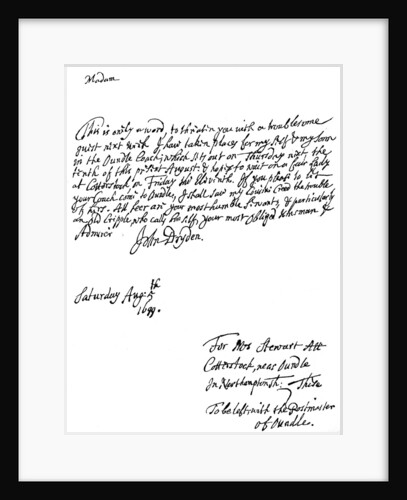 Madam
This is only a word, to threaten you with a troublesome
guest next week. I have taken places for my self & my sonn
in the Oundle Coach, which sets out on Thursday next the
tenth of this present August, & hope to wait on a fair Lady
at Cotterstock, on Friday the eleventh. If you please to let
your Coach come to Oundle, I shall save my Cousin Creed the trouble
of hers. All heer are your most humble Servants, & particularly
an old Cripple, who calls him self your most obliged kinsman &
Admirer
John Dryden.
Saturday Aug: 5th
1699.
For Mrs Stewart Att
Cotterstock, near Oundle
In Northamptonsh: These
To be left with the Postmaster
of Oundle.